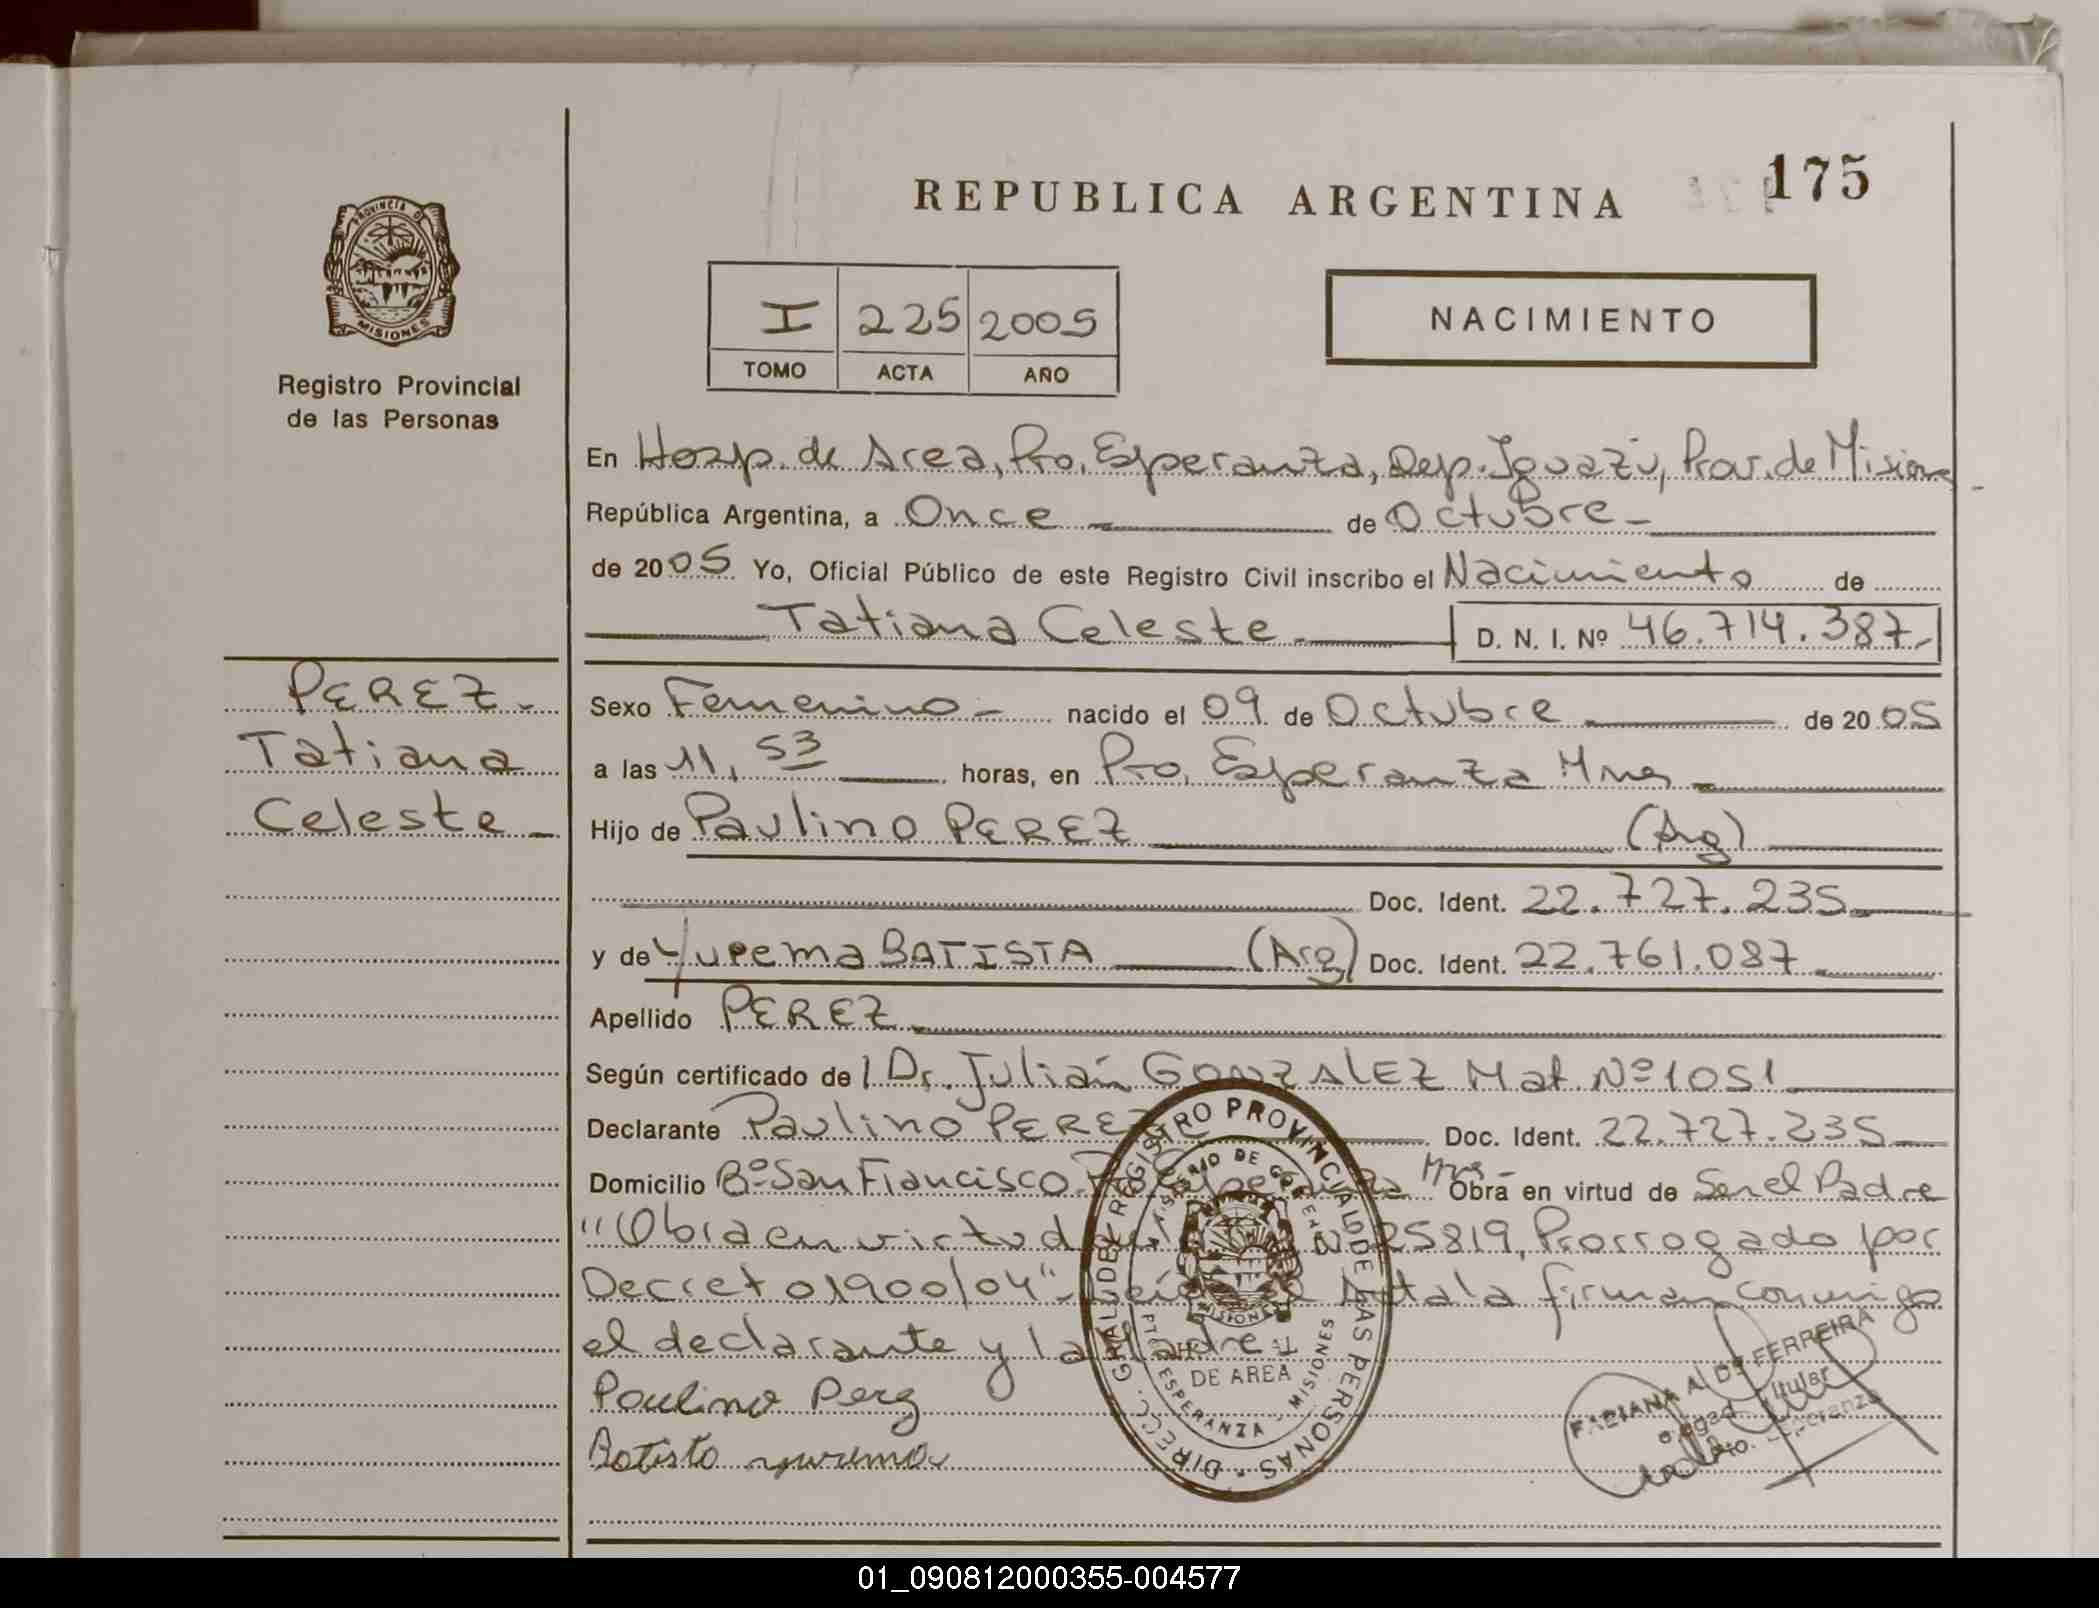 REPUBLICA ARGENTINA
175
PROVINCIA DE
MISIONES
Registro Provincial
de las Personas
I 225 2005
TOMO ACTA AÑO
NACIMIENTO
En Hosp. de Area, Pto. Esperanza, Dep. Iguazú, Prov. de Misiones
República Argentina, a Once de Octubre
de 2005 Yo, Oficial Público de este Registro Civil inscribo el Nacimiento de
Tatiana Celeste D. N. I. Nº 46.714.387
PEREZ
Tatiana
Celeste
Sexo Femenino nacido el 09 de Octubre de 2005
a las 11,53 horas, en Pto. Esperanza Mnes
Hijo de Paulino PEREZ (Arg)
Doc. Ident. 22.727.235
y de Yurema BATISTA (Arg) Doc. Ident. 22.761.087
Apellido PEREZ
Según certificado de Dr. Julián GONZALEZ Mat Nº 1051
Declarante Paulino PEREZ Doc. Ident. 22.727.235
Domicilio Bº San Francisco Pto Esperanza Mnes Obra en virtud de Ser el Padre
"Obra en virtud de la 25819, Prorrogado por
Decreto 1900/04" Leída el Acta la firman conmigo
el declarante y la Madre
Paulino Perez
Batista yurema
DIRECC. GRAL. DEL REGISTRO PROVINCIAL DE LAS PERSONAS
DE AREA
PTO ESPERANZA - MISIONES
MISIONES
FABIANA A. Dº FERREIRA
Titular
01_090812000355-004577